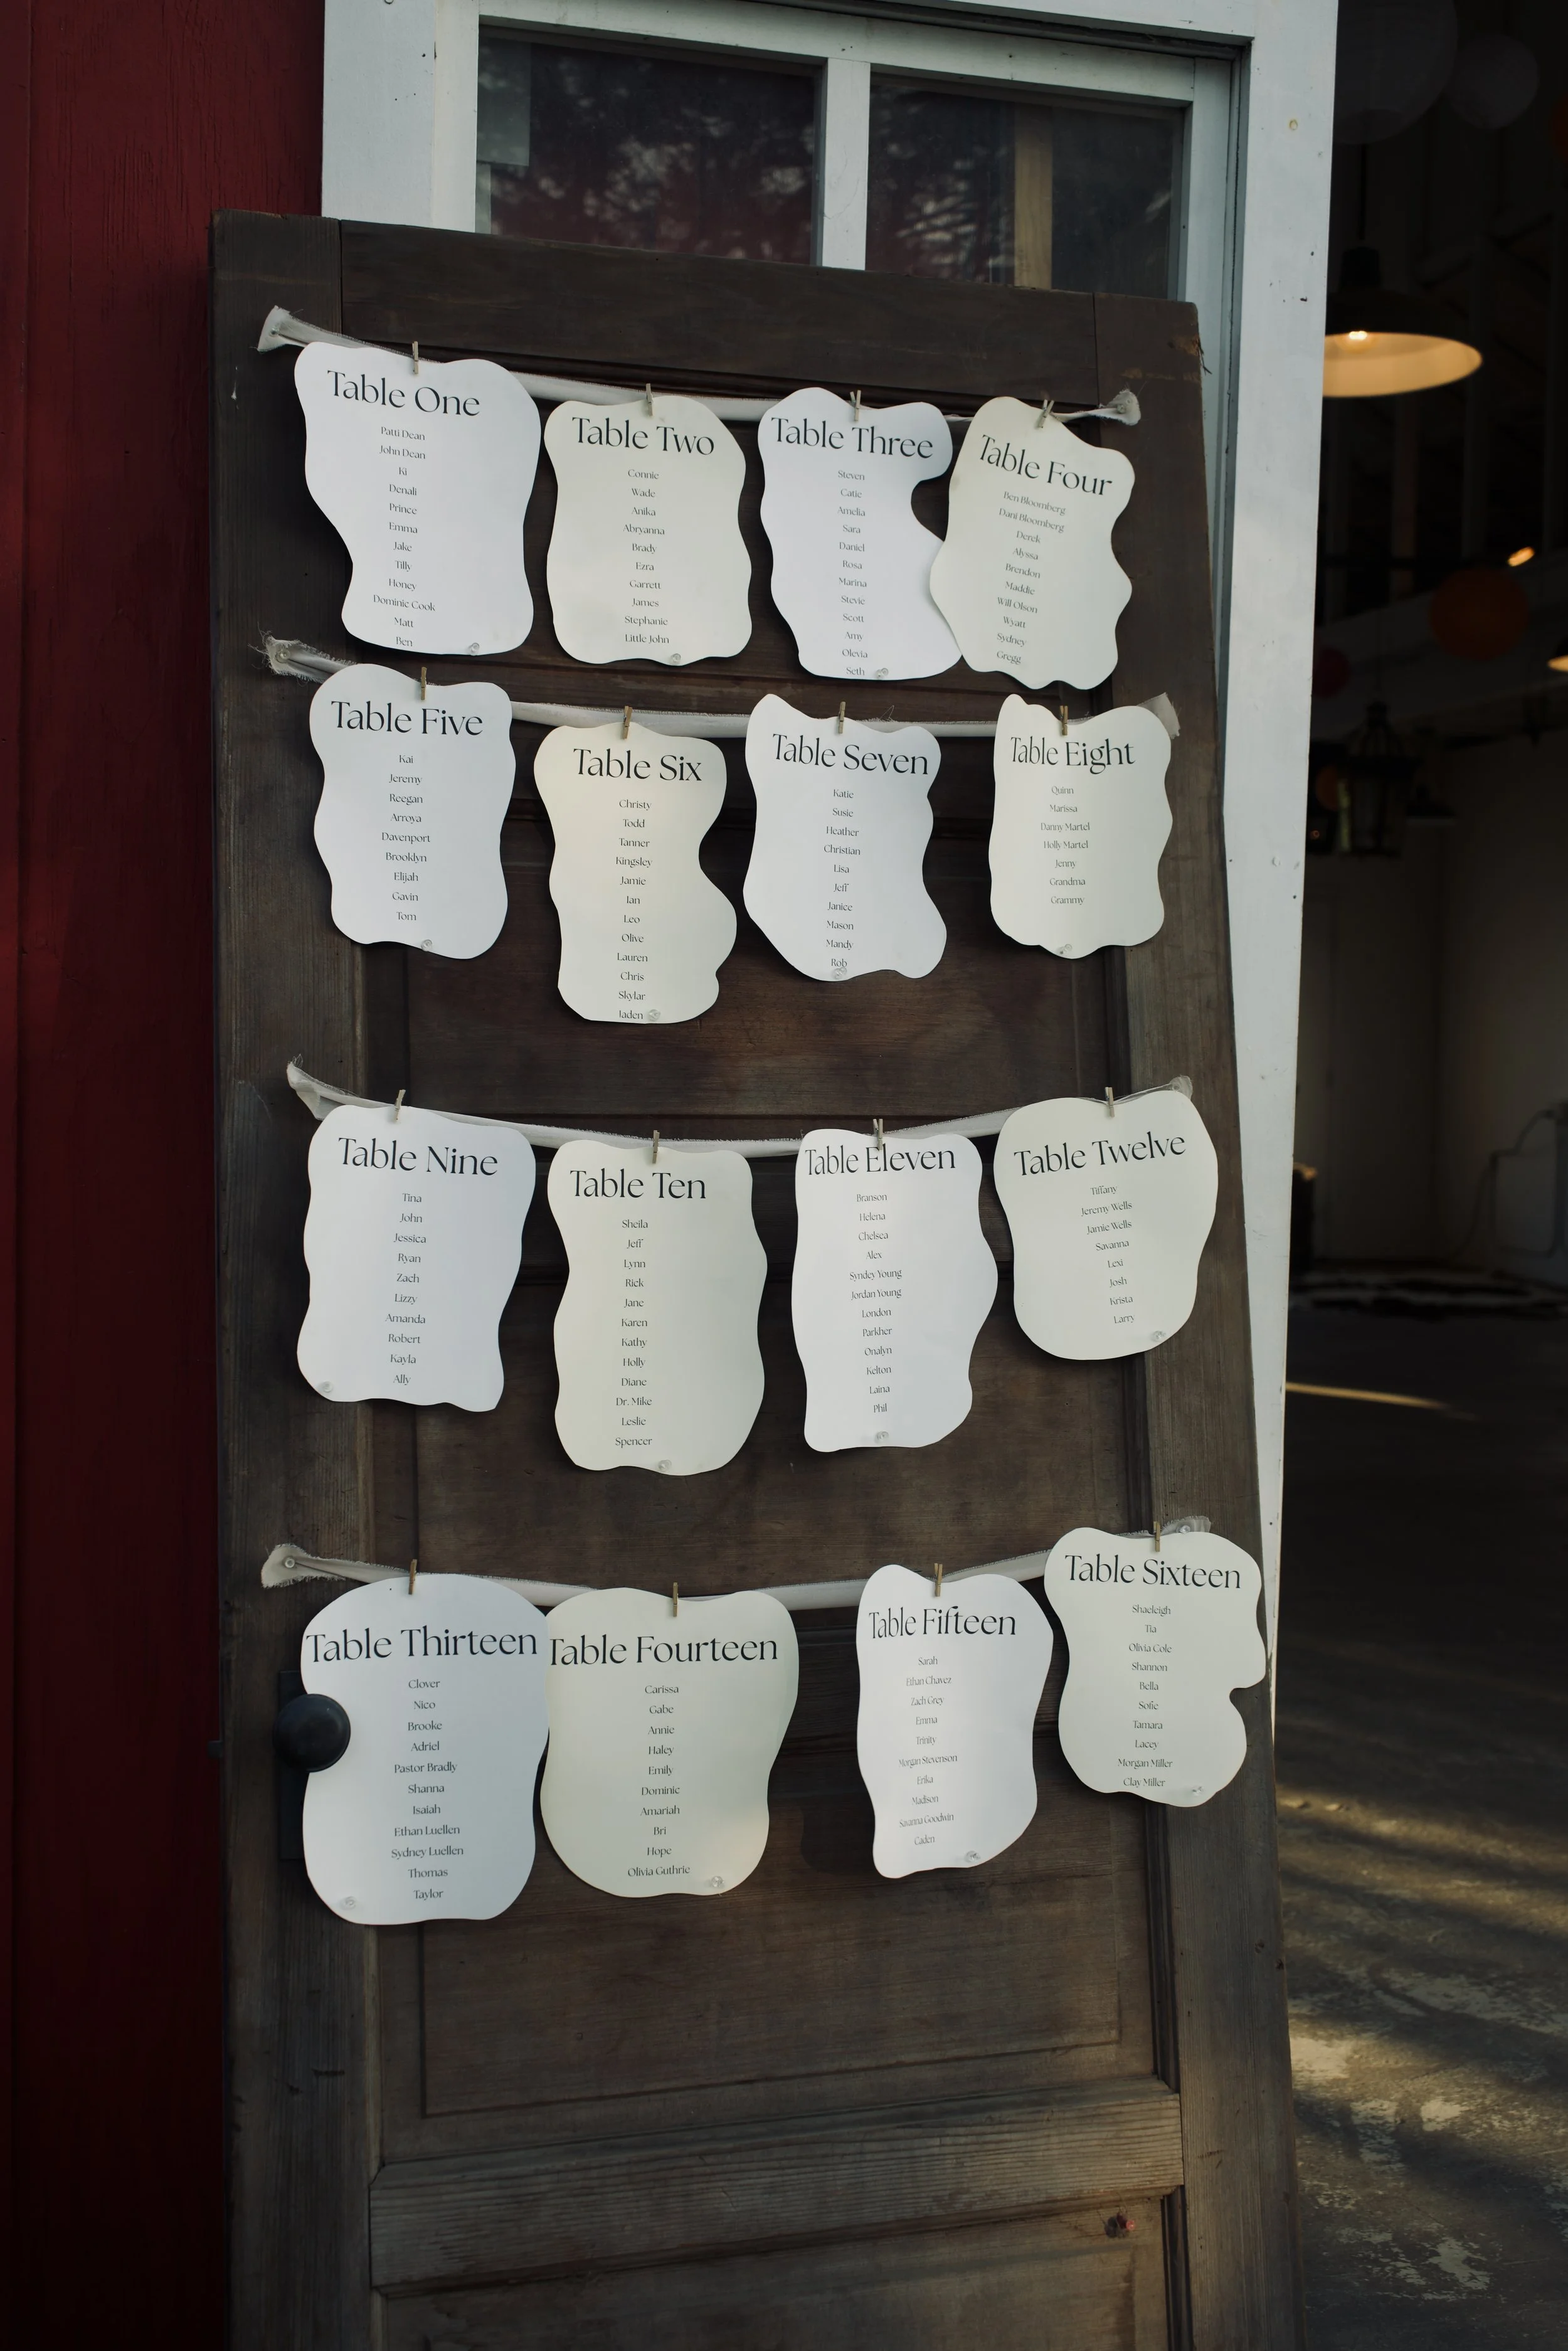 Table One
Patti Dean
John Dean
Ki
Denali
Prince
Emma
Jake
Tilly
Honey
Dominic Cook
Matt
Ben
Table Two
Connie
Wade
Anika
Abryanna
Brady
Ezra
Garrett
James
Stephanie
Little John
Table Three
Steven
Catie
Amelia
Sara
Daniel
Rosa
Marina
Stevie
Scott
Amy
Olevia
Seth
Table Four
Ben Bloomberg
Dani Bloomberg
Derek
Alyssa
Brendon
Maddie
Will Olson
Wyatt
Sydney
Gregg
Table Five
Kai
Jeremy
Reegan
Arroya
Davenport
Brooklyn
Elijah
Gavin
Tom
Table Six
Christy
Todd
Tanner
Kingsley
Jamie
Ian
Leo
Olive
Lauren
Chris
Skylar
Jaden
Table Seven
Katie
Susie
Heather
Christian
Lisa
Jeff
Janice
Mason
Mandy
Rob
Table Eight
Quinn
Marissa
Danny Martel
Holly Martel
Jenny
Grandma
Grammy
Table Nine
Tina
John
Jessica
Ryan
Zach
Lizzy
Amanda
Robert
Kayla
Ally
Table Ten
Sheila
Jeff
Lynn
Rick
Jane
Karen
Kathy
Holly
Diane
Dr. Mike
Leslie
Spencer
Table Eleven
Branson
Helena
Chelsea
Alex
Syndey Young
Jordan Young
London
Parkher
Onalyn
Kelton
Laina
Phil
Table Twelve
Tiffany
Jeremy Wells
Jamie Wells
Savanna
Lexi
Josh
Krista
Larry
Table Thirteen
Clover
Nico
Brooke
Adriel
Pastor Bradly
Shanna
Isaiah
Ethan Luellen
Sydney Luellen
Thomas
Taylor
Table Fourteen
Carissa
Gabe
Annie
Haley
Emily
Dominic
Amariah
Bri
Hope
Olivia Guthrie
Table Fifteen
Sarah
Ethan Chavez
Zach Grey
Emma
Trinity
Morgan Stevenson
Erika
Madison
Savanna Goodwin
Caden
Table Sixteen
Shaeleigh
Tia
Olivia Cole
Shannon
Bella
Sofie
Tamara
Lacey
Morgan Miller
Clay Miller